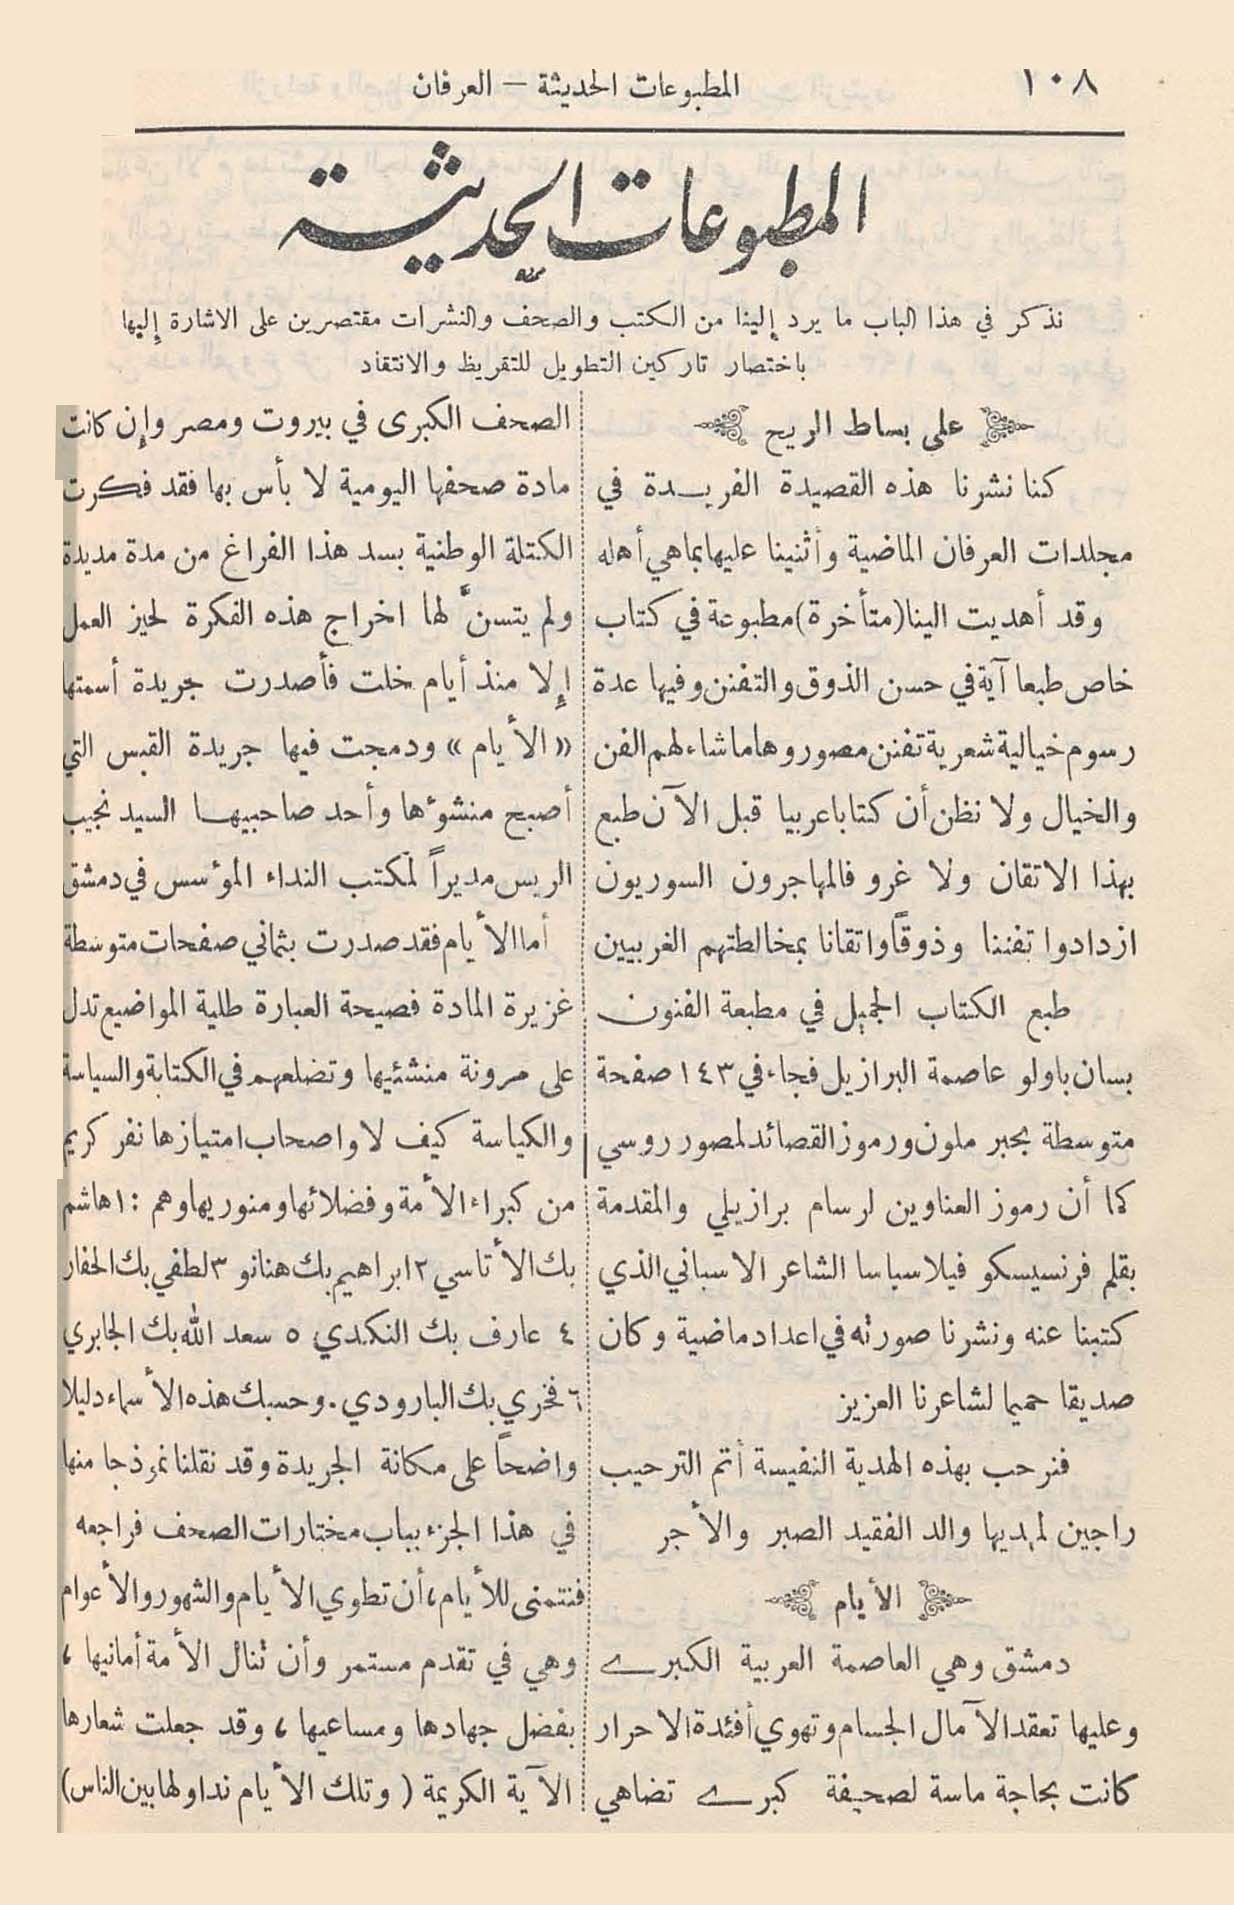 ١٠٨
المطبوعات الحديثة — العرفان
المطبوعات الحديثة
نذكر في هذا الباب ما يرد إلينا من الكتب والصحف والنشرات مقتصرين على الاشارة إليها
باختصار تاركين التطويل للتقريظ والانتقاد
على بساط الريح
كنا نشرنا هذه القصيدة الفريدة في
مجلدات العرفان الماضية وأثنينا عليها بما هي أهله
وقد أهديت الينا (متأخرة) مطبوعة في كتاب
خاص طبعا آية في حسن الذوق والتفنن وفيها عدة
رسوم خيالية شعرية تفنن مصوروها ما شاء لهم الفن
والخيال ولا نظن أن كتابا عربيا قبل الآن طبع
بهذا الاتقان ولا غرو فالمهاجرون السوريون
ازدادوا تفننا وذوقاً واتقانا بمخالطتهم الغربيين
طبع الكتاب الجميل في مطبعة الفنون
بسان باولو عاصمة البرازيل فجاء في ١٤٣ صفحة
متوسطة بحبر ملون ورموز القصائد لمصور روسي
كما أن رموز العناوين لرسام برازيلي والمقدمة
بقلم فرنسيسكو فيلاسباسا الشاعر الاسباني الذي
كتبنا عنه ونشرنا صورته في اعداد ماضية وكان
صديقا حميما لشاعرنا العزيز
فنرحب بهذه الهدية النفيسة أتم الترحيب
راجين لمهديها والد الفقيد الصبر والأجر
الأيام
دمشق وهي العاصمة العربية الكبرى
وعليها تعقد الآمال الجسام وتهوي أفئدة الاحرار
كانت بحاجة ماسة لصحيفة كبرى تضاهي
الصحف الكبرى في بيروت ومصر وإن كانت
مادة صحفها اليومية لا بأس بها فقد فكرت
الكتلة الوطنية بسد هذا الفراغ من مدة مديدة
ولم يتسنَّ لها اخراج هذه الفكرة لحيز العمل
إلا منذ أيام خلت فأصدرت جريدة أسمتها
«الأيام» ودمجت فيها جريدة القبس التي
أصبح منشؤها وأحد صاحبيها السيد نجيب
الريس مديراً لمكتب النداء المؤسس في دمشق
أما الأيام فقد صدرت بثماني صفحات متوسطة
غزيرة المادة فصيحة العبارة طلية المواضيع تدل
على مرونة منشئيها وتضلعهم في الكتابة والسياسة
والكياسة كيف لا واصحاب امتيازها نفر كريم
من كبراء الأمة وفضلائها ومنوريها وهم : ١ هاشم
بك الأتاسي ٢ ابراهيم بك هنانو ٣ لطفي بك الحفار
٤ عارف بك النكدي ٥ سعد الله بك الجابري
٦ فخري بك البارودي . وحسبك هذه الأسماء دليلا
واضحاً على مكانة الجريدة وقد نقلنا نموذجا منها
في هذا الجزء بباب مختارات الصحف فراجعه
فنتمنى للأيام ، أن تطوي الأيام والشهور والأعوام
وهي في تقدم مستمر وأن تنال الأمة أمانيها ،
بفضل جهادها ومساعيها ، وقد جعلت شعارها
الآية الكريمة ( وتلك الأيام نداولها بين الناس)